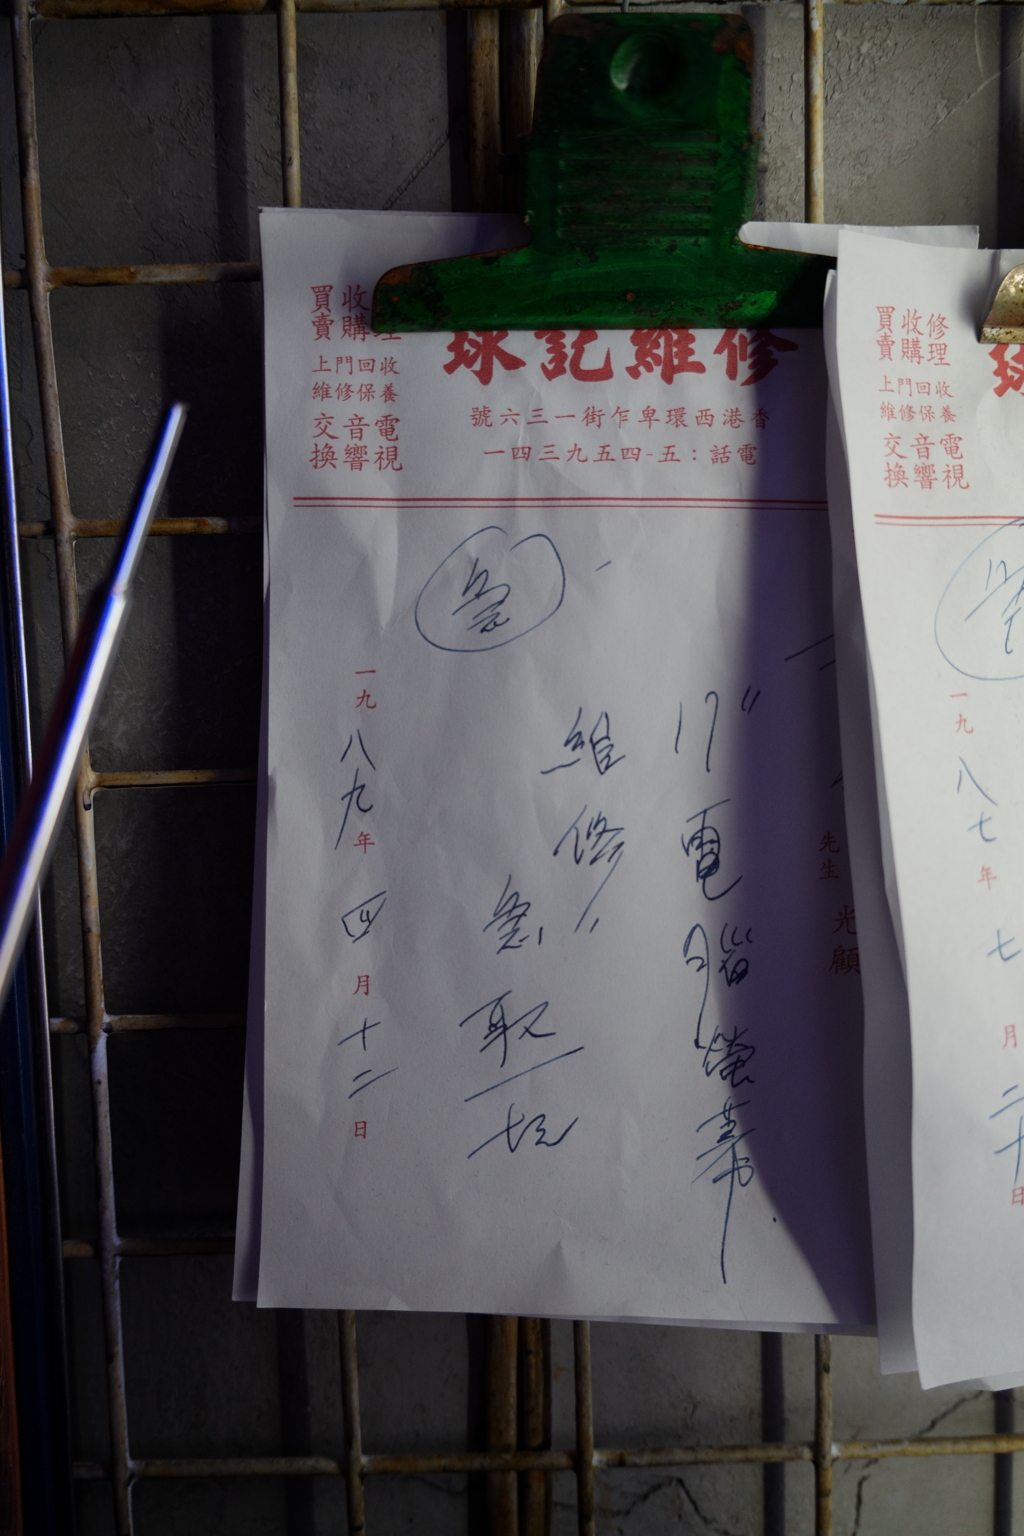 修維記球
香港西環卑乍街一三六號
電話：五-四五九三四一
買賣
收購
上門回收
維修保養
電視
音響
交換
急
17" 電腦螢幕
維修
急取
一九八九年四月十二日
先生
光顧
修理
收購
買賣
上門回收
維修保養
電視
音響
交換
一九八七年七月二十日